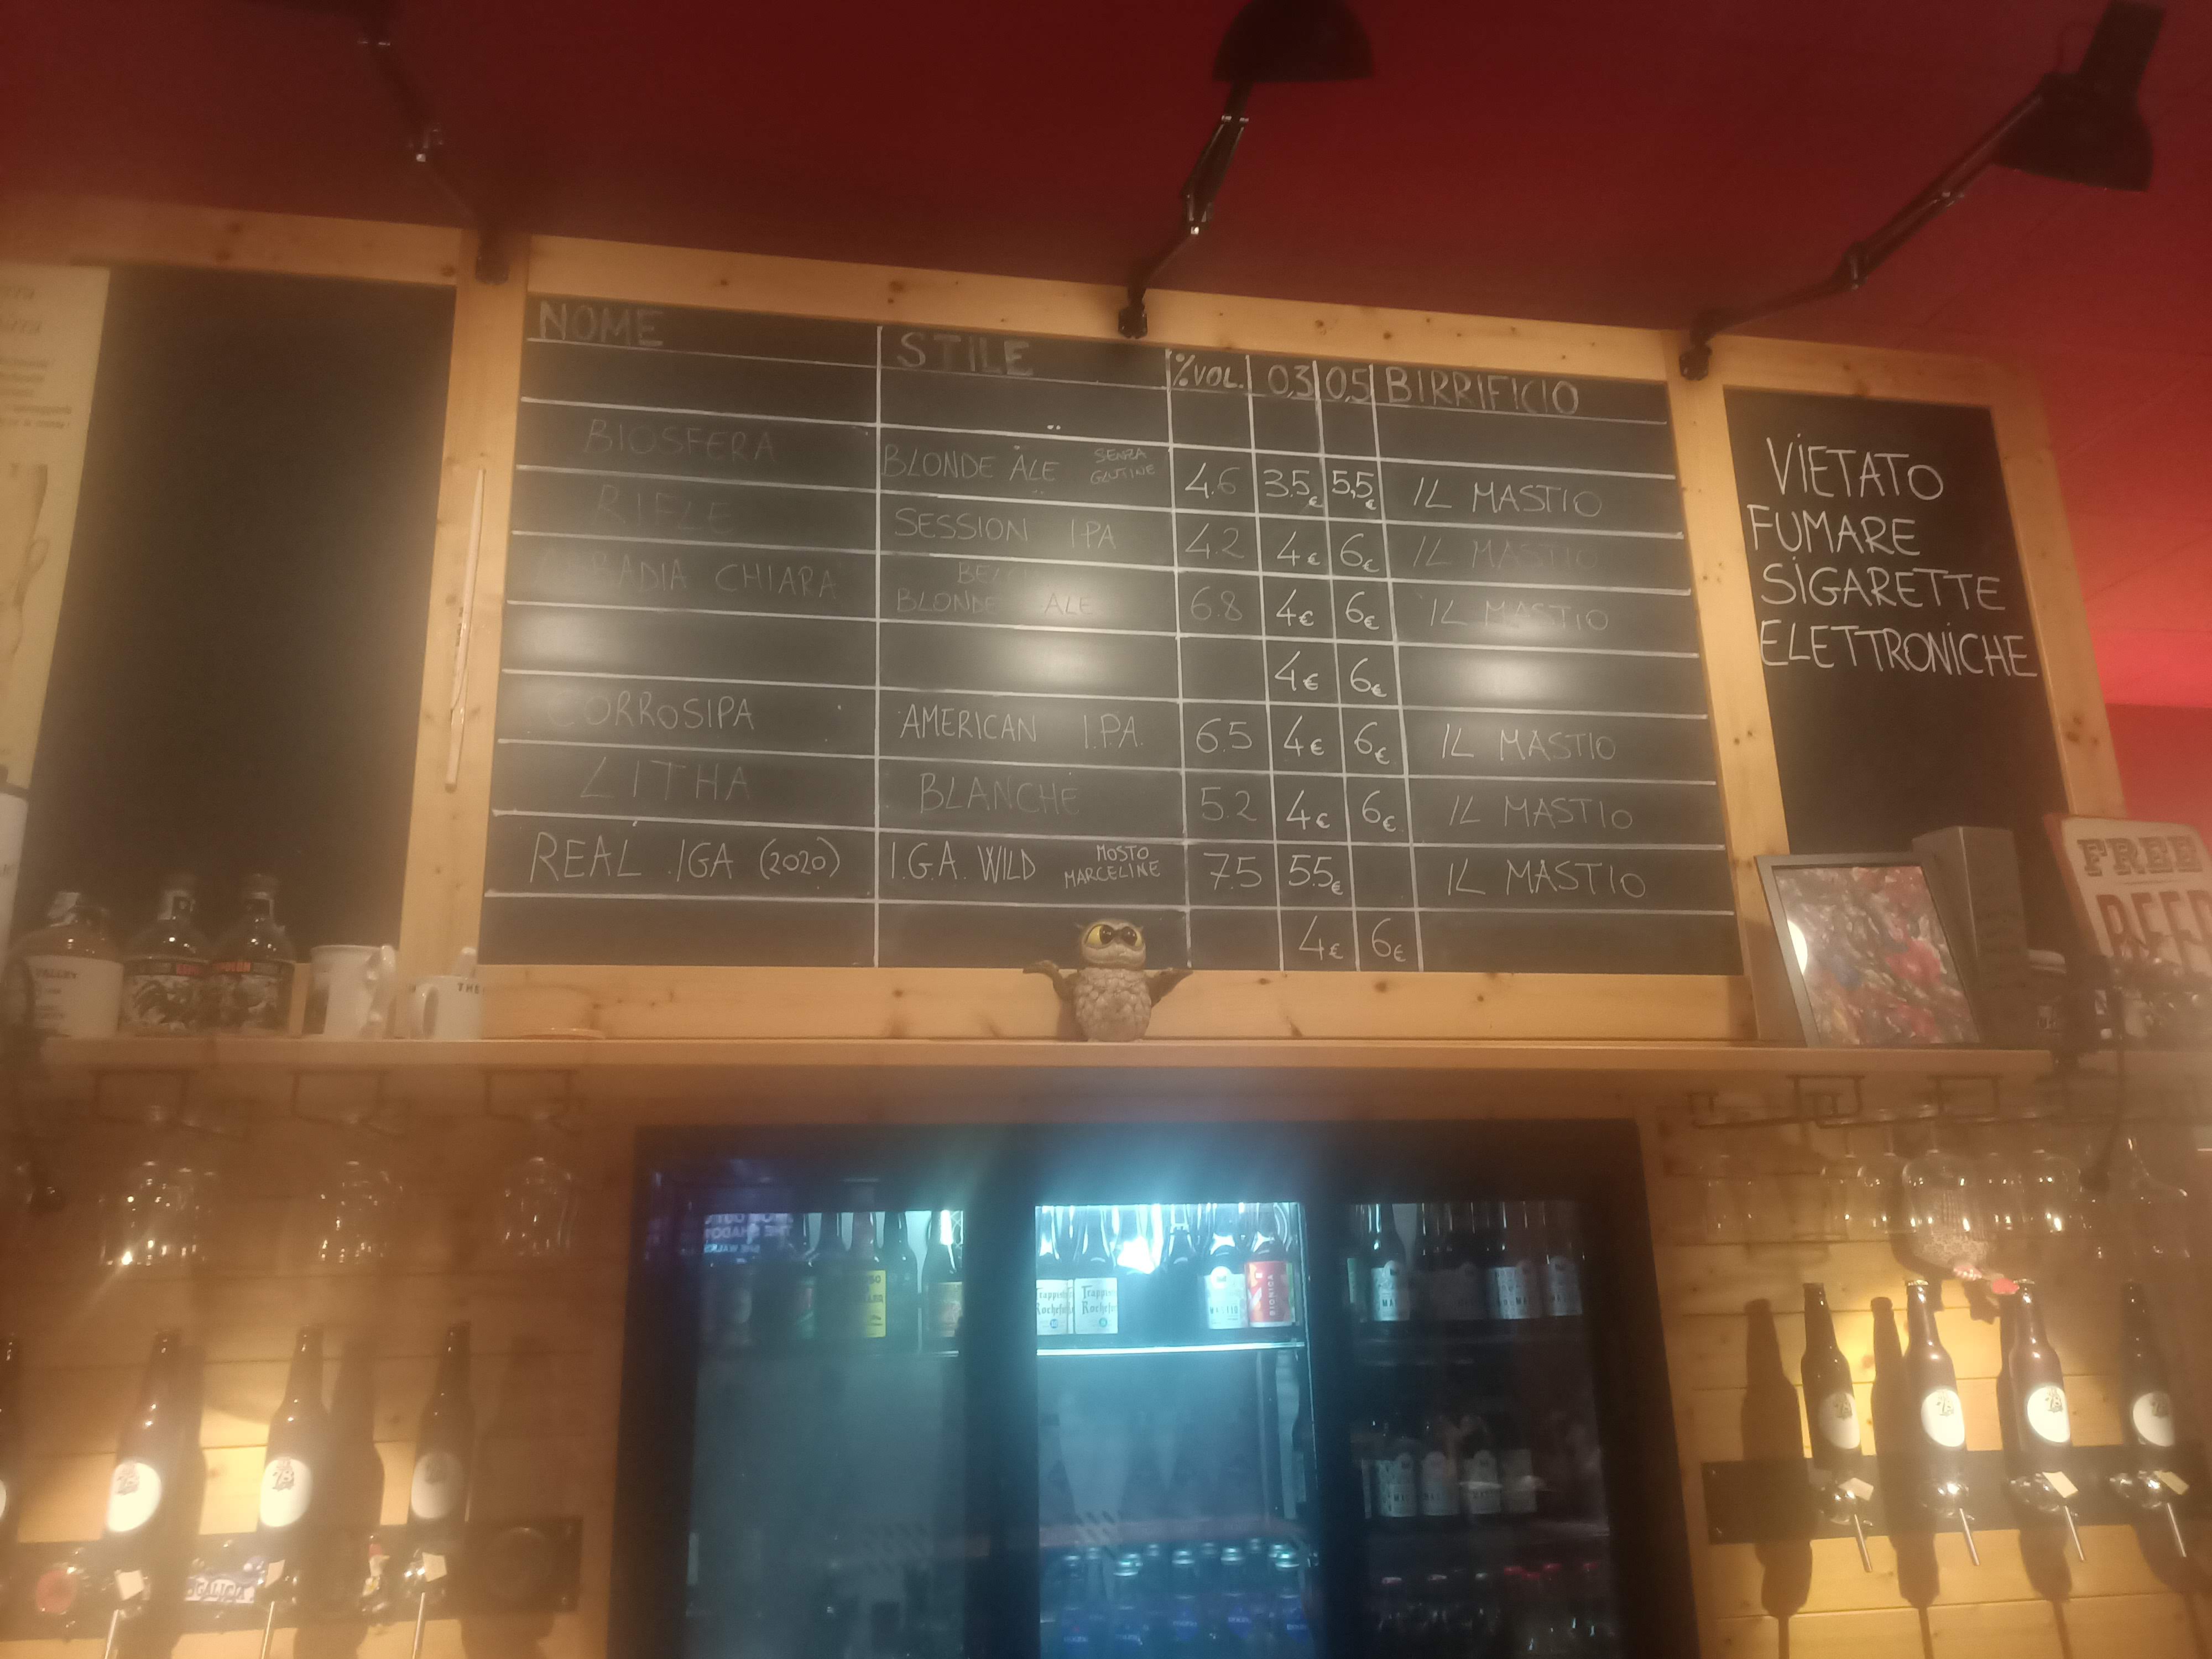 NOME STILE %VOL. 0,3 0,5 BIRRIFICIO
BIOSFERA BLONDE ALE SENZA GLUTINE 4.6 3.5€ 5,5€ IL MASTIO
RIFLE SESSION I.P.A 4.2 4€ 6€ IL MASTIO
CHIARA BLONDE ALE 6.8 4€ 6€ IL MASTIO
4€ 6€
CORROSIPA AMERICAN I.P.A. 6.5 4€ 6€ IL MASTIO
LITHA BLANCHE 5.2 4€ 6€ IL MASTIO
REAL IGA (2020) I.G.A. WILD MOSTO MARCELINE 7.5 5.5€ IL MASTIO
4€ 6€
VIETATO
FUMARE
SIGARETTE
ELETTRONICHE
FREE
BEER
VALLEY
THE
BIONICA